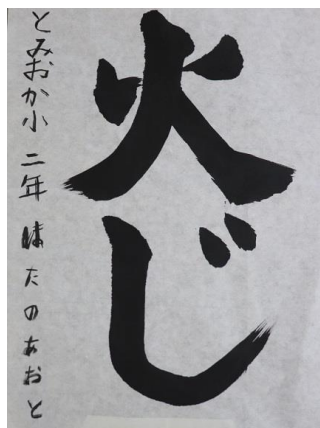 火じ
とみおか小 二年 はたのあおと